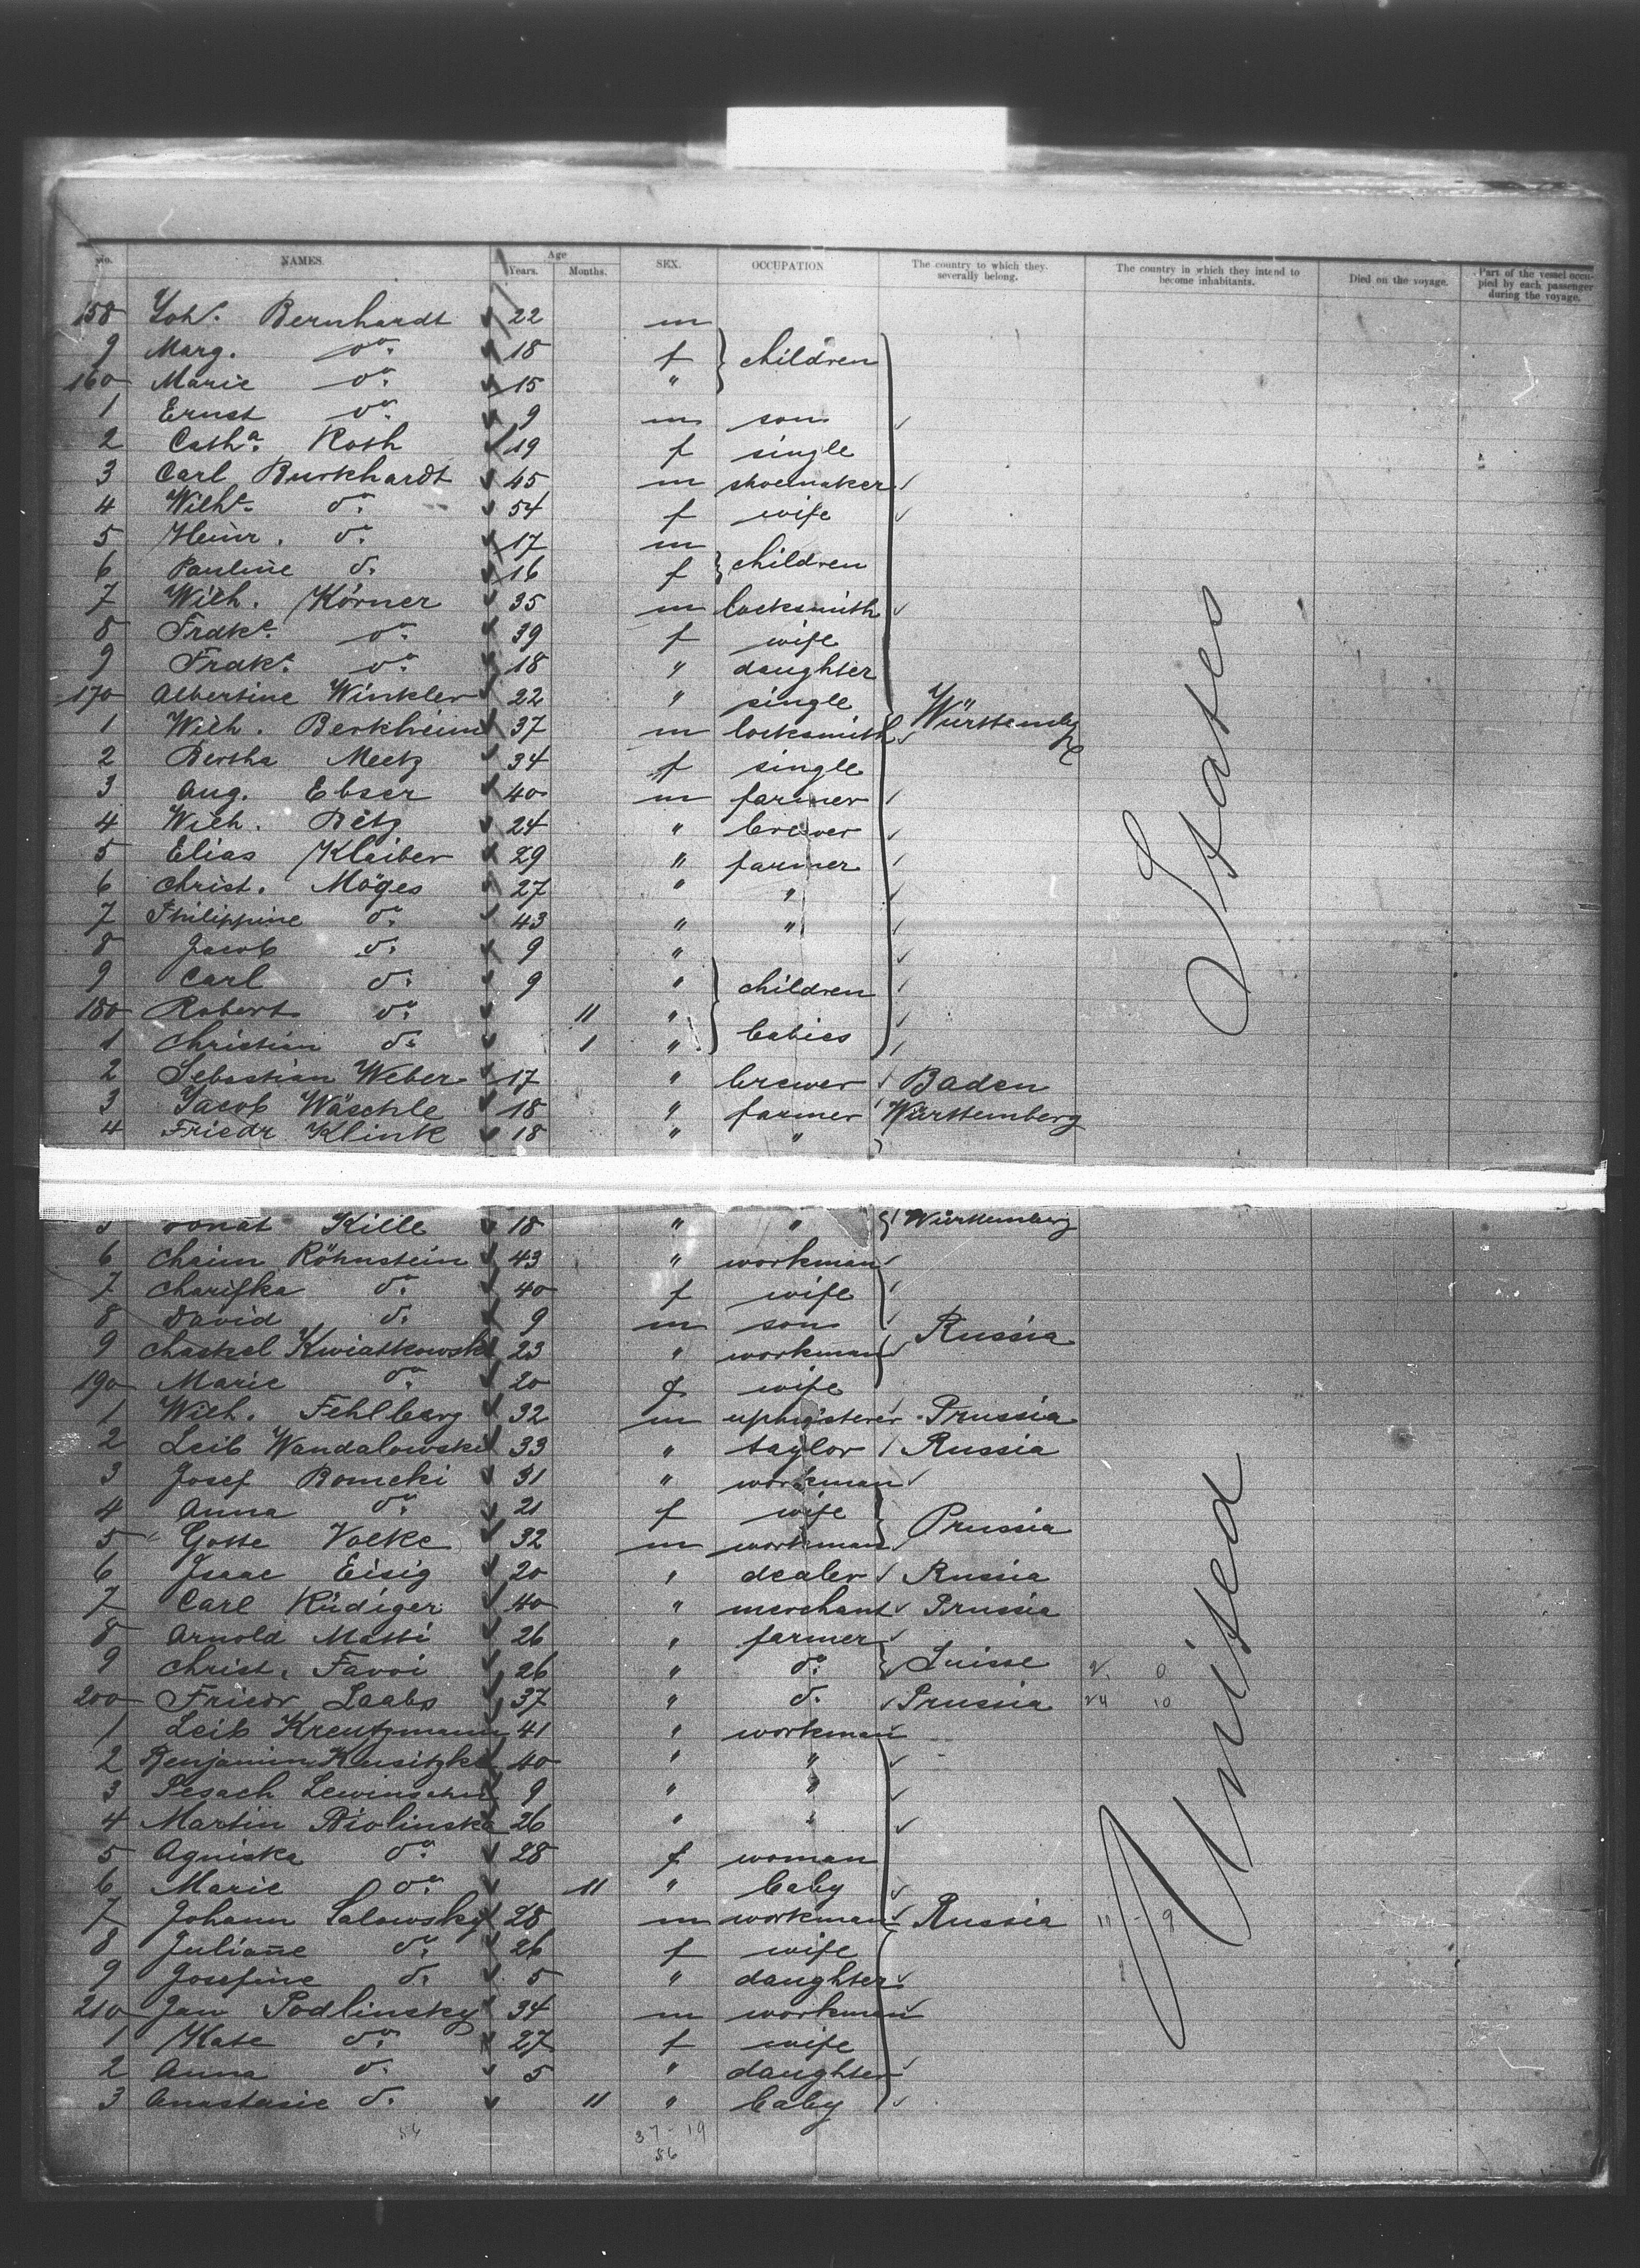 No. NAMES. Age Years. Months. SEX. OCCUPATION The country to which they severally belong. The country in which they intend to become inhabitants. Died on the voyage. Part of the vessel occupied by each passenger during the voyage.
158 Joh. Bernhardt 22 m
9 Marg. do. 18 f children
160 Marie do. 15 "
1 Ernst do. 9 m son
2 Catha. Roth 19 f single
3 Carl Burkhardt 45 m shoemaker
4 Wilhe. do. 54 f wife
5 Heinr. do. 17 m
6 Pauline do. 16 f children
7 Wilh. Körner 35 m locksmith
8 Frdke. do. 39 f wife
9 Frdke. do. 18 " daughter
170 Albertine Winkler 22 " single Württembg
1 Wilh. Berkheim 37 m locksmith
2 Bertha Metz 34 f single
3 Aug. Ebser 40 m farmer
4 Wilh. Betz 24 " brewer
5 Elias Kleiber 29 " farmer
6 Christ. Möges 27 " "
7 Philippine do. 43 " "
8 Jacob do. 9 "
9 Carl do. 9 " children
180 Robert do. 11 "
1 Christian do. 1 " babies
2 Sebastian Weber 17 " brewer Baden
3 Jacob Wäschle 18 " farmer Württemberg
4 Friedr Klink 18 " "
States
5 Kille 18 " " Württemberg
6 Chaim Röhnstein 43 " workman
7 Charifka do. 40 f wife
8 David do. 9 m son Russia
9 Chaskel Kwiatkowski 23 " workman
190 Marie do. 20 f wife
1 Wilh. Fehlberg 32 m upholsterer Prussia
2 Leib Wandalowski 33 " taylor Russia
3 Josef Bomcki 31 " workman
4 Anna do. 21 f wife Prussia
5 Gotte Volke 32 m workman
6 Isaac Eisig 20 " dealer Russia
7 Carl Rüdiger 40 " merchant Prussia
8 Arnold Matti 26 " farmer
9 Christ. Favoi 26 " do. Suisse
200 Friedr Laabs 37 " do. Prussia 24 10
1 Leib Kreutzmann 41 " workman
2 Benjamin 40 " "
3 Pesach 9 " "
4 Martin Biolinska 26 " "
5 Agniska do. 28 f woman
6 Marie do. 11 " baby
7 Johann Salowsky 28 m workman Russia 11 - 9
8 Juliane do. 26 f wife
9 Josefine do. 5 " daughter
210 Jan Podlinsky 34 m workman
1 Kate do. 27 f wife
2 Anna do. 5 " daughter
3 Anastasie do. 11 " baby
United
56 37 - 19
56